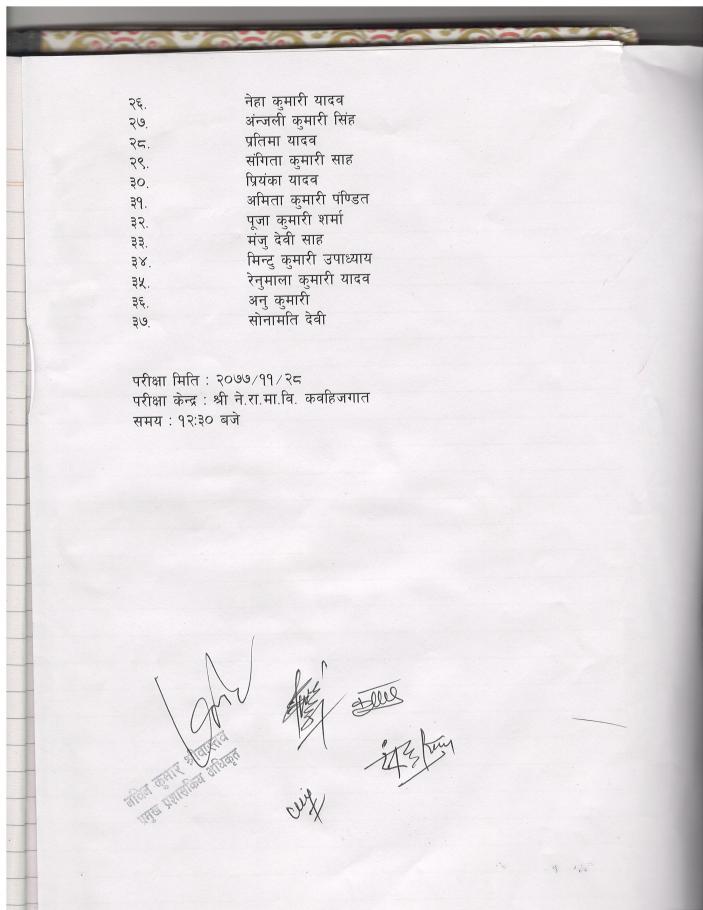 २६. नेहा कुमारी यादव
२७. अंन्जली कुमारी सिंह
२८. प्रतिमा यादव
२९. संगिता कुमारी साह
३०. प्रियंका यादव
३१. अमिता कुमारी पंण्डित
३२. पूजा कुमारी शर्मा
३३. मंजु देवी साह
३४. मिन्टु कुमारी उपाध्याय
३५. रेनुमाला कुमारी यादव
३६. अनु कुमारी
३७. सोनामति देवी
परीक्षा मिति : २०७७/११/२८
परीक्षा केन्द्र : श्री ने.रा.मा.वि. कवहिजगात
समय : १२:३० बजे
कुमार श्रीवास्तव
प्रमुख प्रशासकिय अधिकृत